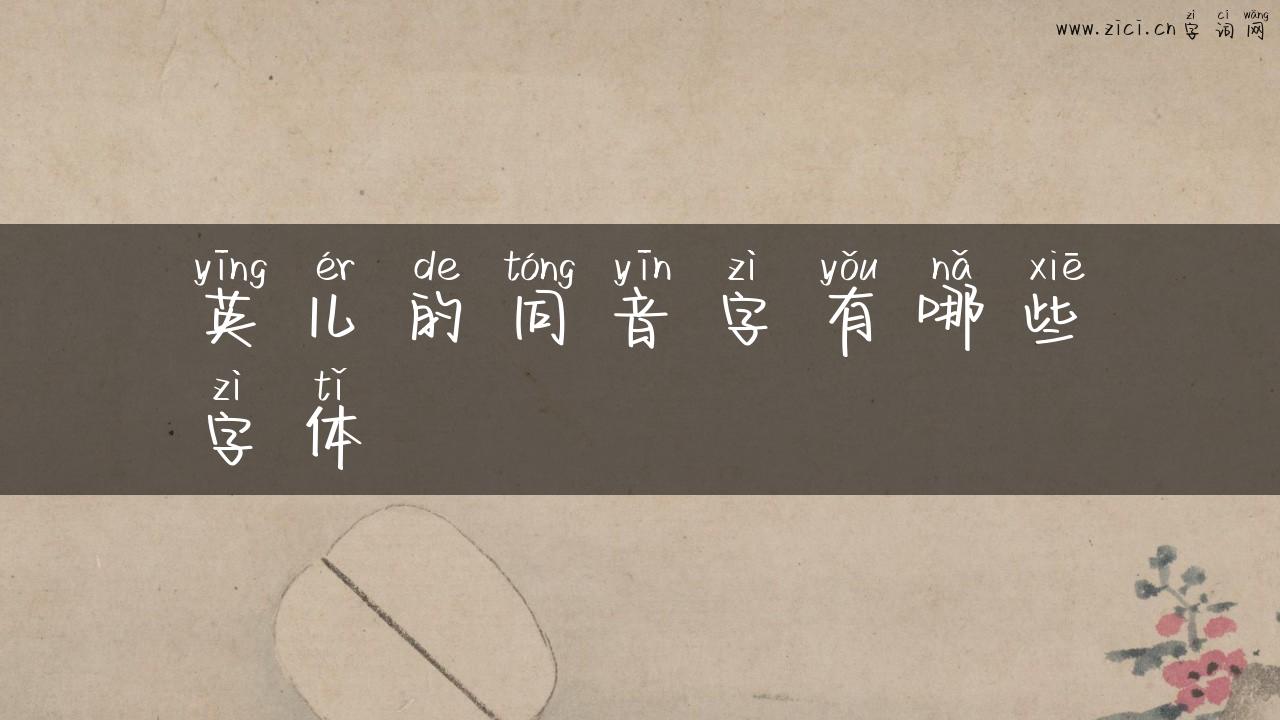 zì cí wǎng
www.zici.cn 字 词 网
yīng ér de tóng yīn zì yǒu nǎ xiē
英 儿 的 同 音 字 有 哪 些
zì tǐ
字 体